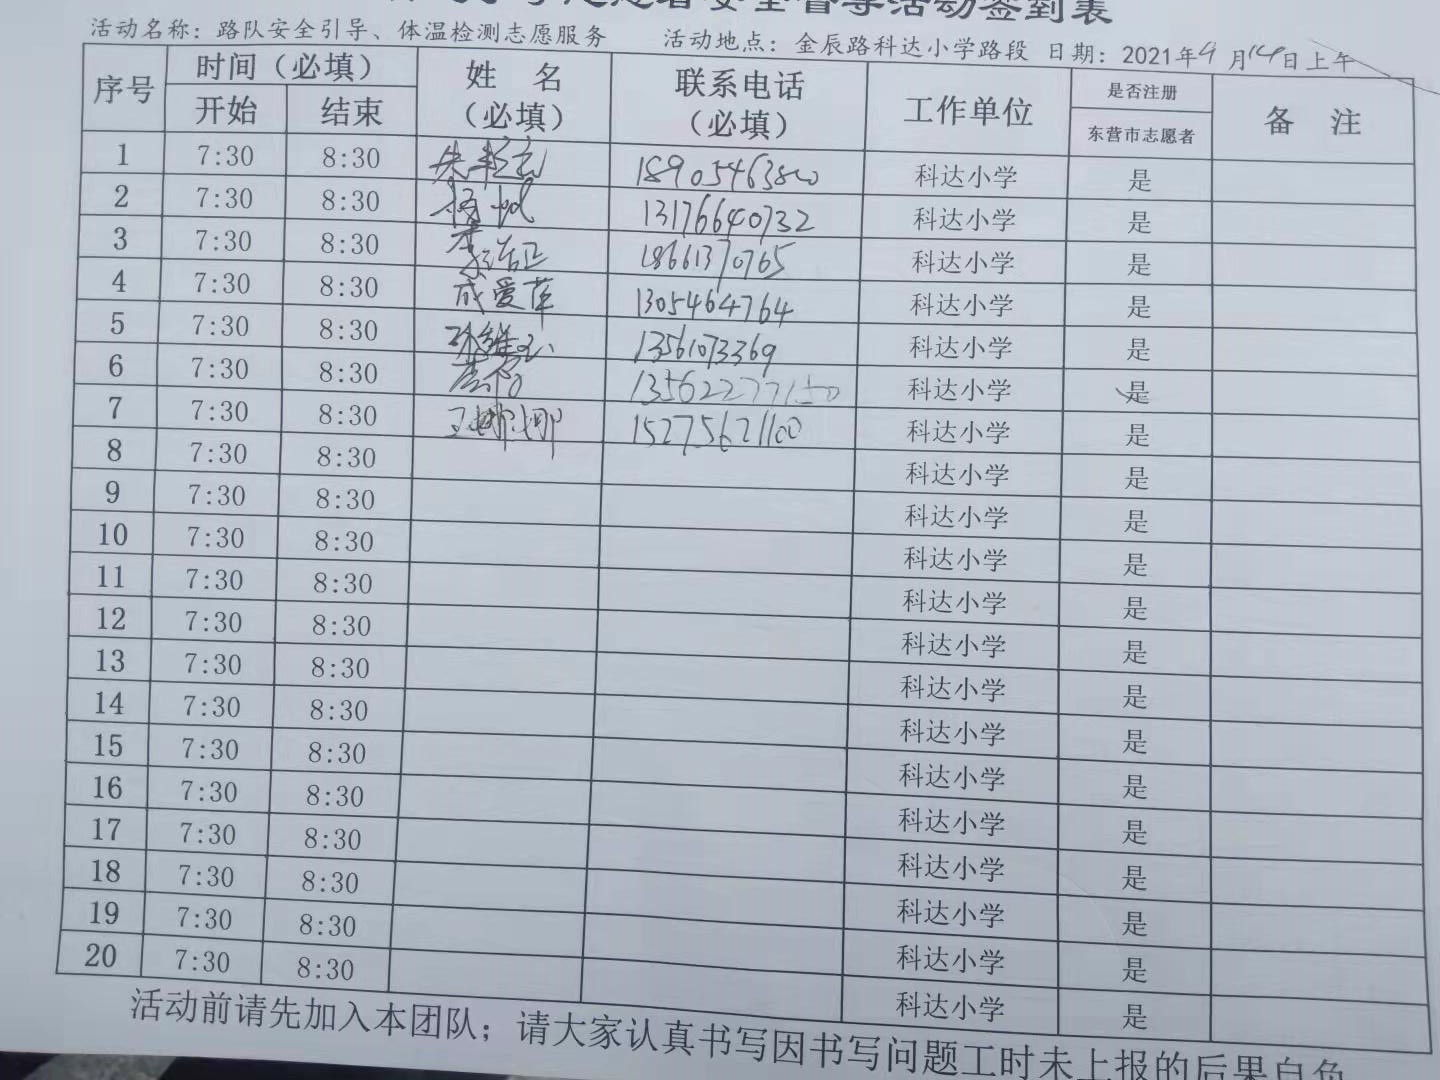 活动签到表
活动名称：路队安全引导、体温检测志愿服务 活动地点：金辰路科达小学路段 日期：2021年9月14日上午
序号 时间（必填） 姓 名（必填） 联系电话（必填） 工作单位 是否注册 备 注
开始 结束 东营市志愿者
1 7:30 8:30 18905463800 科达小学 是
2 7:30 8:30 13176640732 科达小学 是
3 7:30 8:30 18661370765 科达小学 是
4 7:30 8:30 成爱萍 13054644764 科达小学 是
5 7:30 8:30 13561073369 科达小学 是
6 7:30 8:30 13562277150 科达小学 是
7 7:30 8:30 王娜娜 15275621100 科达小学 是
8 7:30 8:30 科达小学 是
9 7:30 8:30 科达小学 是
10 7:30 8:30 科达小学 是
11 7:30 8:30 科达小学 是
12 7:30 8:30 科达小学 是
13 7:30 8:30 科达小学 是
14 7:30 8:30 科达小学 是
15 7:30 8:30 科达小学 是
16 7:30 8:30 科达小学 是
17 7:30 8:30 科达小学 是
18 7:30 8:30 科达小学 是
19 7:30 8:30 科达小学 是
20 7:30 8:30 科达小学 是
活动前请先加入本团队；请大家认真书写因书写问题工时未上报的后果自负